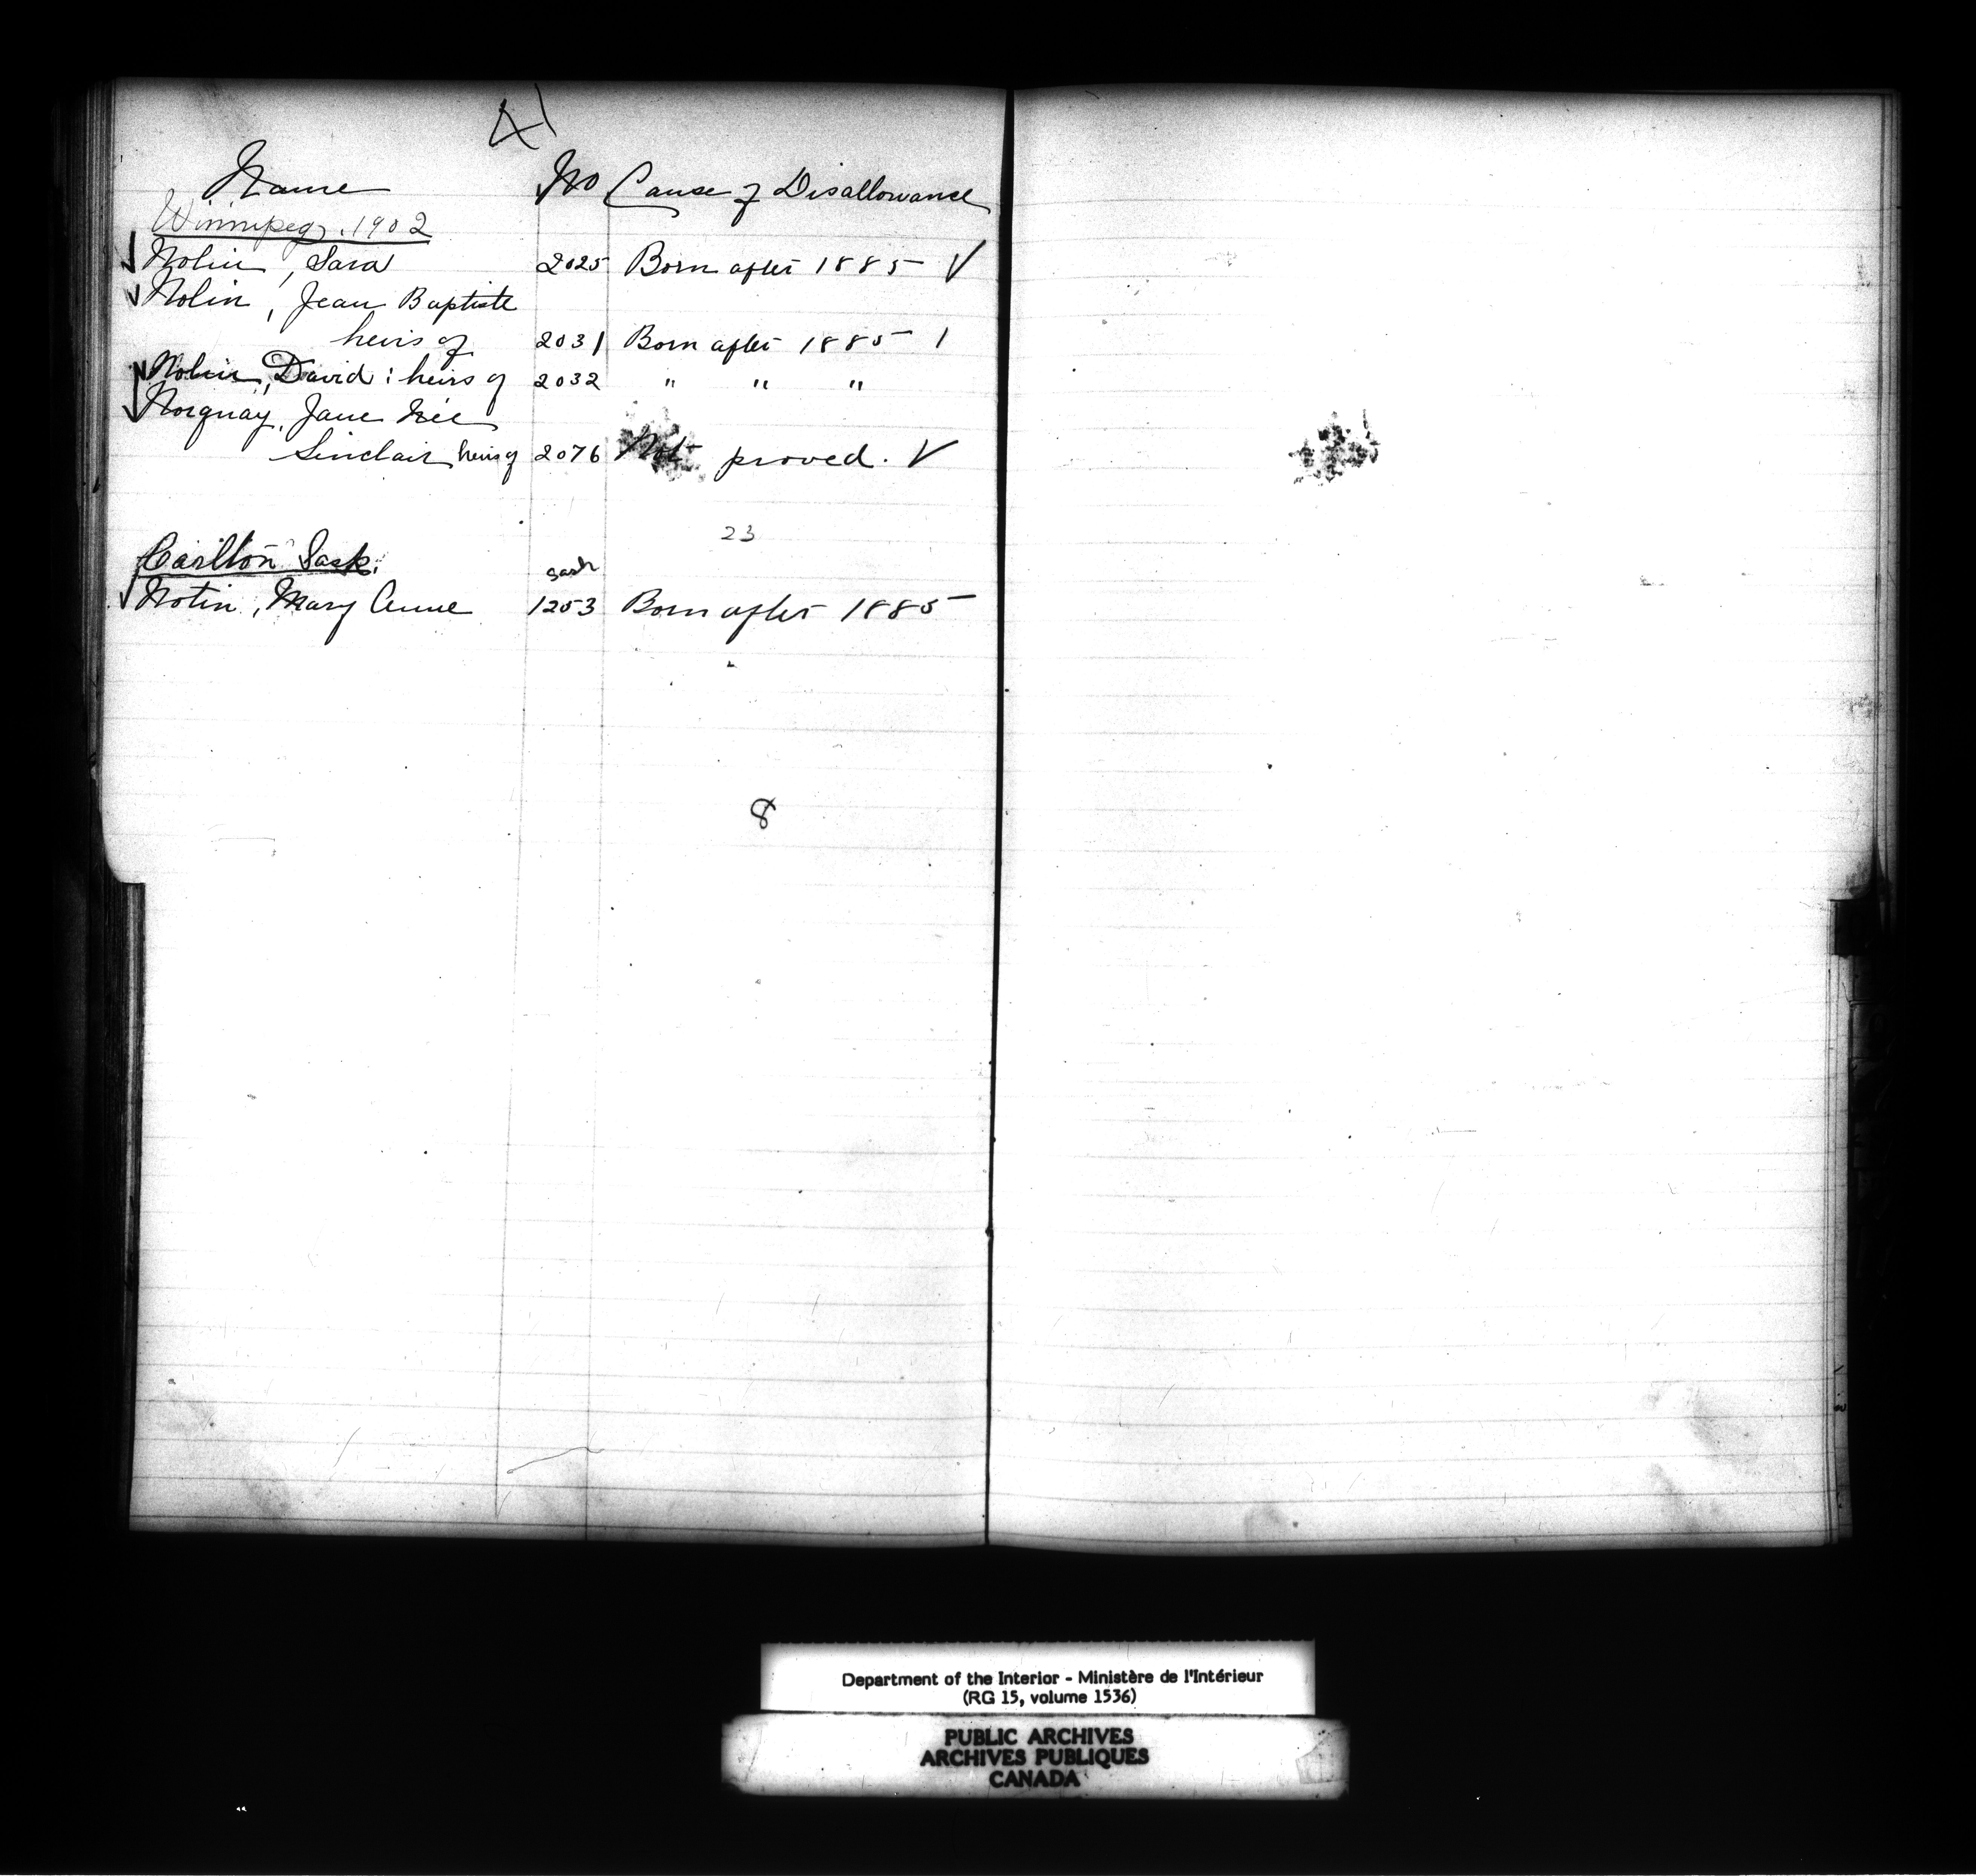 Name No Cause of Disallowance
Winnipeg, 1902
Nolin, Sara 2025 Born after 1885 ✓
Nolin, Jean Baptiste
heirs of 2031 Born after 1885
Nolin, David: heirs of 2032 " " "
Norquay, Jane Née
Sinclair heirs of 2076 Not proved. ✓
23
Carlton Sask.
Sask
Nolin, Mary Anne 1253 Born after 1885
8
Department of the Interior - Ministère de l'Intérieur
(RG 15, volume 1536)
PUBLIC ARCHIVES
ARCHIVES PUBLIQUES
CANADA